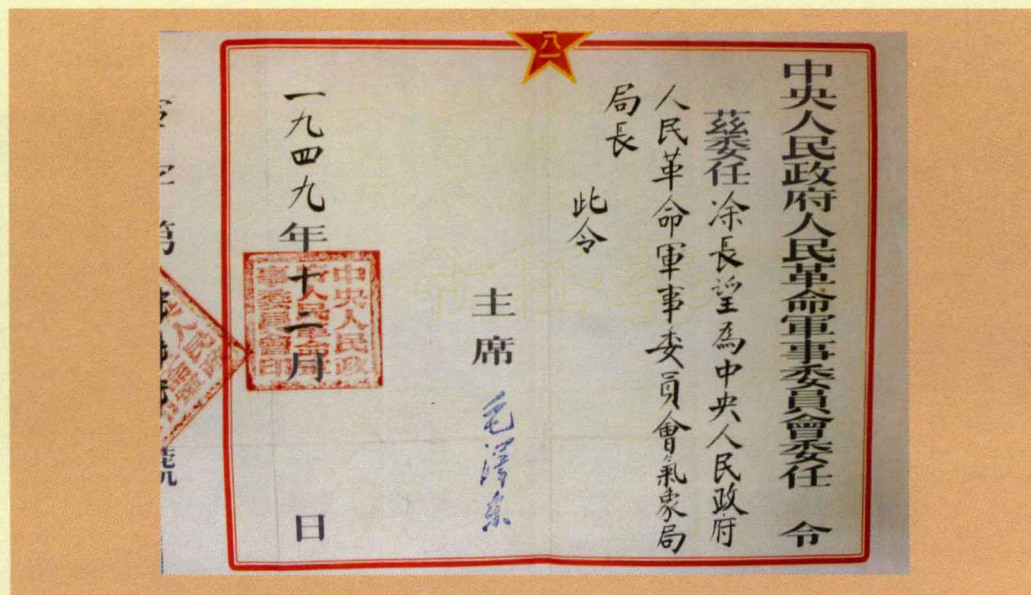 八一
中央人民政府人民革命軍事委員會委任 令
茲委任涂長望為中央人民政府
人民革命軍事委員會氣象局
局長
此令
主席 毛澤東
一九四九年十二月 日
中央人民政
府人民革命軍
事委員會印
字第 號